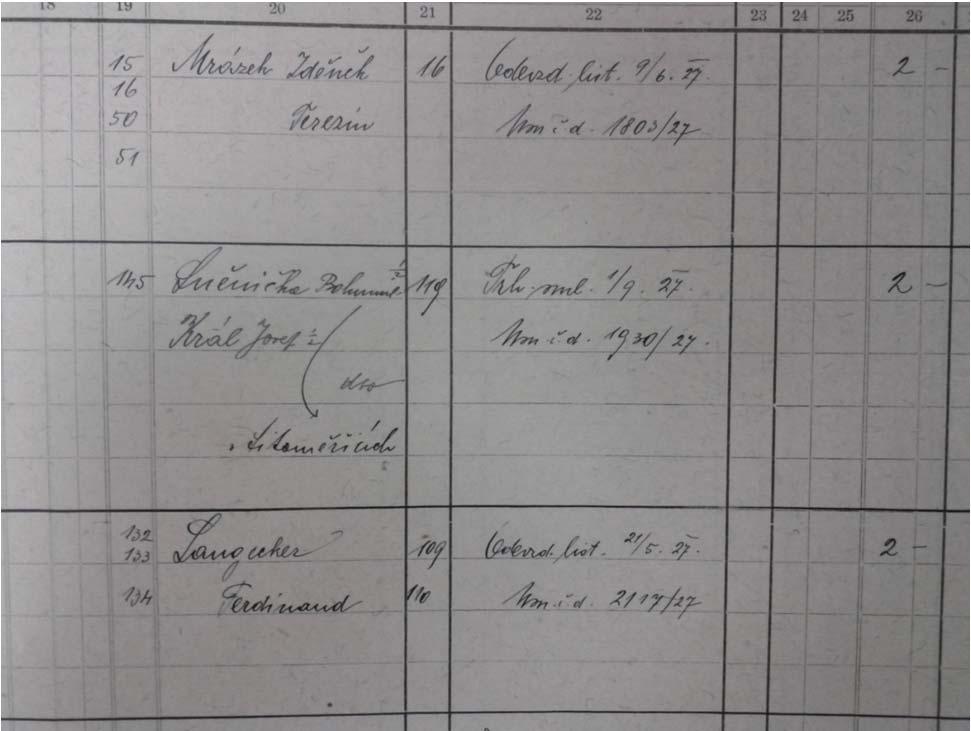 18 19 20 21 22 23 24 25 26
15 Mrázek Zděněk 16 Odevzd. list. 9/6. 27. 2 -
16
50 Terezín Um. č. d. 1803/27
51
145 Lučnička Bohumil 1/2 119 Trh. sml. 1/9. 27. 2 -
Král Josef 1/2 Um. č. d. 1930/27.
dto
Litoměřicích
132
133 Langecker 109 Odevzd. list. 21/5. 27. 2 -
134 Ferdinand 110 Um. č. d. 2117/27